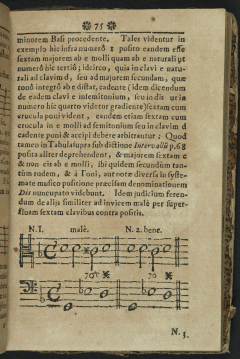 75
minorem Basi procedente. Tales videntur in
exemplo hic infra numerô 1 posito eandem esse
sextam majorem ab e molli quam ab e naturali ut
numerô hîc tertiô; ideirco, quia in clavi e natu-
rali ad clavim d, seu ad majorem secundam, quæ
tonô integrô ab e distat, cadente (idem dicendum
de eadem clavi e intensionium, seu in dis ut in
numero hic quarto videtur gradiente) sextam cum
crucula poni vident, eandem etiam sextam cum
crucula in e molli ad semitonium seu in clavim d
cadente poni & accipi debere arbitrantur. Quod
tamen in Tabula supra sub dictione Intervallũ p. 68
posita aliter deprehendent, & majorem sextam c
& non cis ab e molli, ibi quidem secundùm tan-
tùm eudem, & à Toni, aut note diversa in syste-
mate musico positione præcisam denominationem
Dis nuncupato videbunt. Idem judicium feren-
dum de alijs similiter ad invicem malè per super-
fluam sextam clavibus contra positis.
N. 1. malè. N. 2. bene.
N. 3.